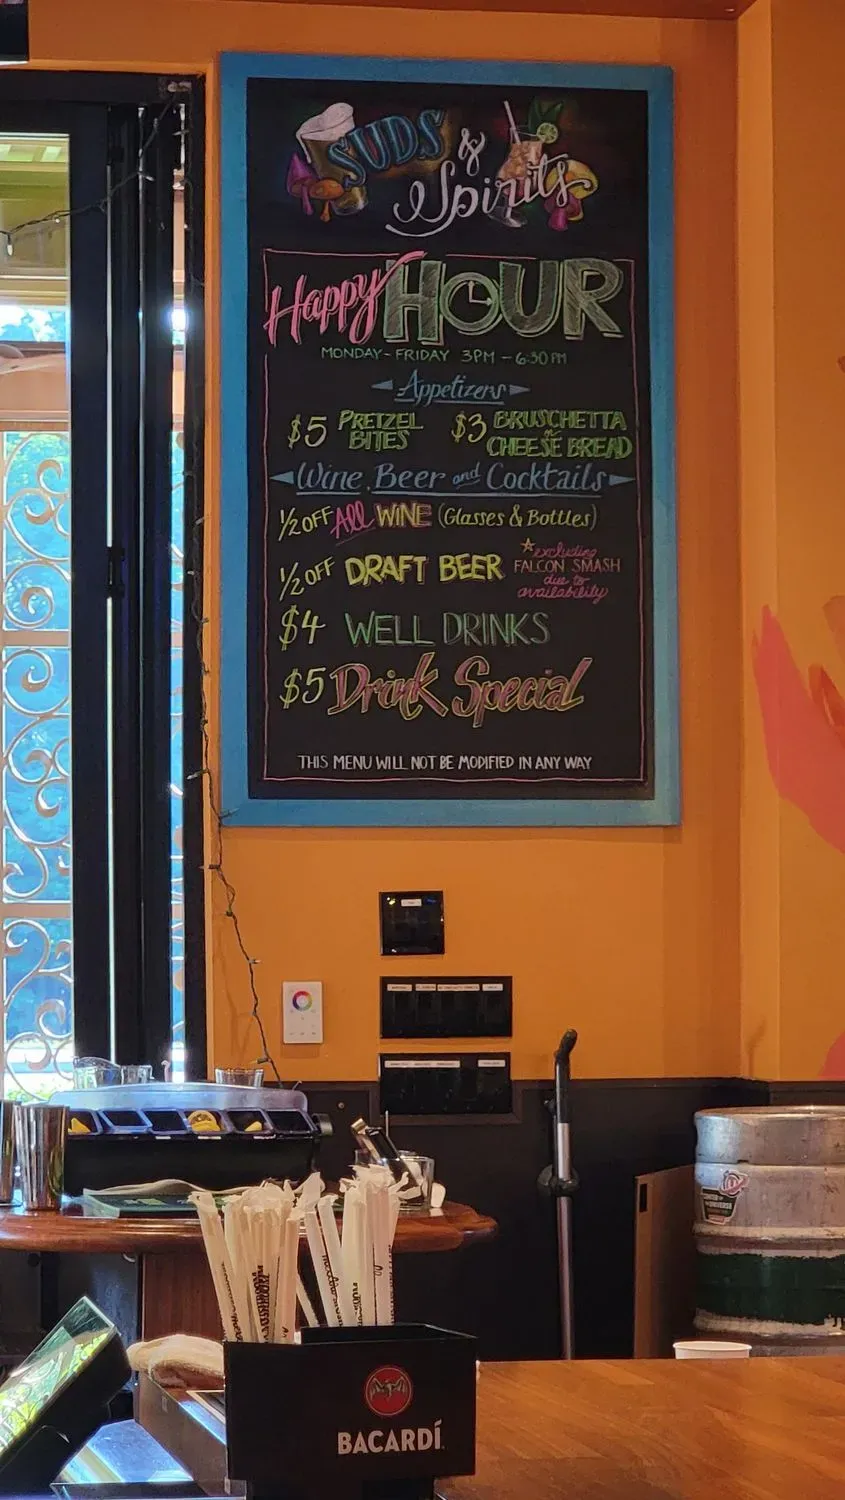 SUDS
&
Spirits
Happy HOUR
MONDAY - FRIDAY 3PM - 6:30 PM
Appetizers
$5 PRETZEL BITES
$3 BRUSCHETTA
or
CHEESE BREAD
Wine, Beer and Cocktails
1/2 OFF All WINE (Glasses & Bottles)
1/2 OFF DRAFT BEER
*excluding
FALCON SMASH
due to
availability
$4 WELL DRINKS
$5 Drink Special
THIS MENU WILL NOT BE MODIFIED IN ANY WAY
BACARDÍ